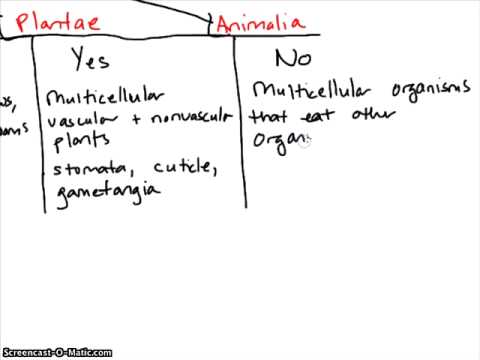 Plantae
Animalia
Yes
No
Multicellular
vascular + nonvascular
plants
stomata, cuticle,
gametangia
Multicellular organisms
that eat other
organ
Screencast-O-Matic.com